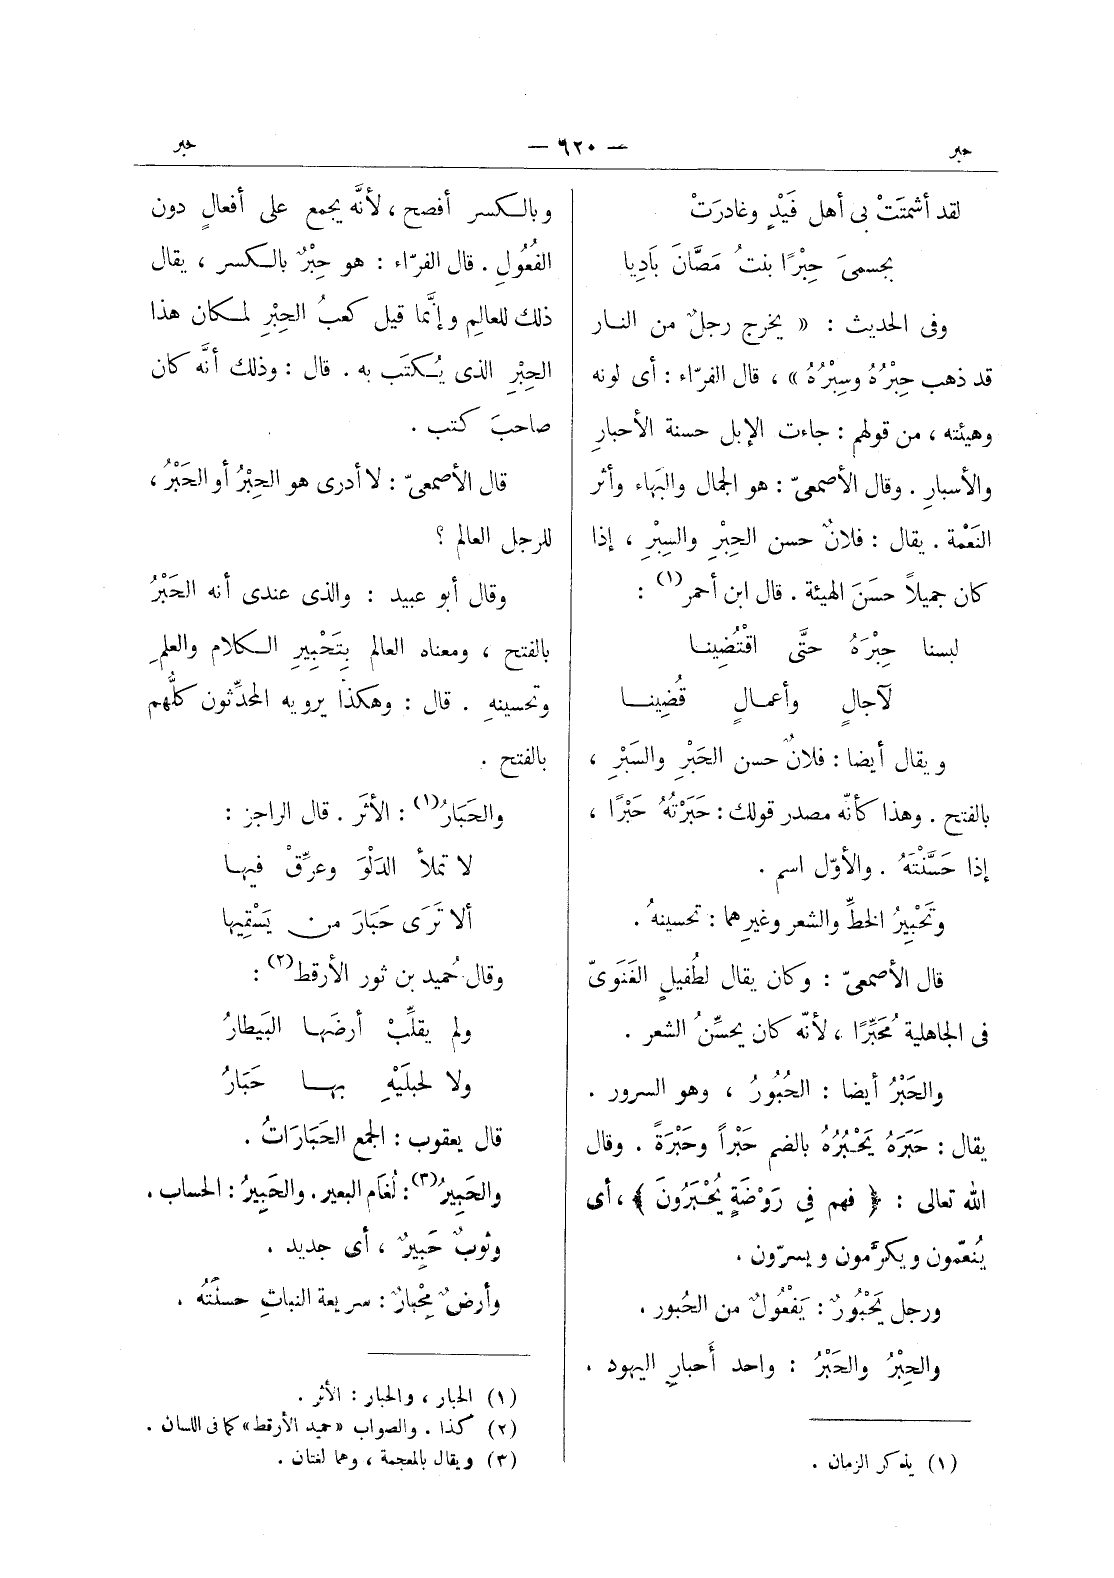 حبر
— ٦٢٠ —
حبر
لقد أشمتَتْ بى أهل فَيْدٍ وغادرَتْ
بجسمىَ حِبْرًا بنتُ مَصَّانَ بَادِيا
وفى الحديث : « يخرج رجلٌ من النـار
قد ذهب حِبْرُهُ وسِبْرُهُ » ، قال الفرّاء : أى لونه
وهيئته ، من قولهم : جاءت الإبل حسنة الأحبارِ
والأسبارِ . وقال الأصمعىّ : هو الجمال والبَهاء وأثر
النَعْمة . يقال : فلانٌ حسن الحِبْرِ والسِبْرِ ، إذا
كان جميلاً حسَنَ الهيئة . قال ابن أحمر(١) :
لبسنا حِبْرَهُ حتَّى اقْتُضِينـا
لآجالٍ وأعمـالٍ قُضِينـــا
ويقال أيضا : فلانٌ حسن الحَبْرِ والسَبْرِ ،
بالفتح . وهذا كأنّه مصدر قولك : حَبَرْتُهُ حَبْرًا ،
إذا حَسَّنْتَهُ . والأوّل اسم .
وتَحْبِيرُ الخطِّ والشعر وغيرِهما : تحسينهُ .
قال الأصمعىّ : وكان يقال لطُفيلٍ الغَنَوىّ
فى الجاهلية مُحَبِّرًا ، لأنّه كان يحسِّنُ الشعر .
والحَبْرُ أيضا : الحُبُورُ ، وهو السرور .
يقال : حَبَرَهُ يَحْبُرُهُ بالضم حَبْراً وحَبْرَةً . وقال
الله تعالى : ﴿ فهم فِي رَوْضَةٍ يُحْبَرُونَ ﴾ ، أى
يُنعَّمون ويكرَّمون ويسرّون .
ورجل يَحْبُورٌ : يَفْعُولٌ من الحُبور .
والحِبْرُ والحَبْرُ : واحد أَحبارِ اليهود .
(١) يذكر الزمان .
وبالـكسر أفصح ، لأنَّه يجمع على أفعالٍ دون
الفُعُولِ . قال الفرّاء : هو حِبْرٌ بالـكسر ، يقال
ذلك للعالِمِ وإنَّما قيل كعبُ الحِبْرِ لمـكان هذا
الحِبْرِ الذى يُـكتَب به . قال : وذلك أنَّه كان
صاحبَ كتب .
قال الأصمعىّ : لا أدرى هو الحِبْرُ أو الحَبْرُ ،
للرجل العالم ؟
وقال أبو عبيد : والذى عندى أنه الحَبْرُ
بالفتح ، ومعناه العالم بِتَحْبِيرِ الـكلام والعلمِ
وتحسينهِ . قال : وهكذا يرويه المحدِّثون كلُّهم
بالفتح .
والحَبَارُ(١) : الأثَر . قال الراجز :
لا تملأ الدَلْوَ وعرِّقْ فيهـا
ألا تَرَى حَبَارَ من يَسْقِيها
وقال حُميد بن ثور الأرقط(٢) :
ولم يقلِّبْ أرضَهـا البَيطارُ
ولا لحبلَيْهِ بهــا حَبَارُ
قال يعقوب : الجمع الحَبَارَاتُ .
والحَبِيرُ(٣) : لُغَام البعير . والحَبِيرُ : الحساب .
وثوبٌ حَبِيرٌ ، أى جديد .
وأرضٌ مِحْبارٌ : سريعة النباتِ حسنَتُهُ .
(١) الحبار ، والحبار : الأثر .
(٢) كذا . والصواب « حميد الأرقط » كما فى اللسان .
(٣) ويقال بالمعجمة ، وهما لغتان .